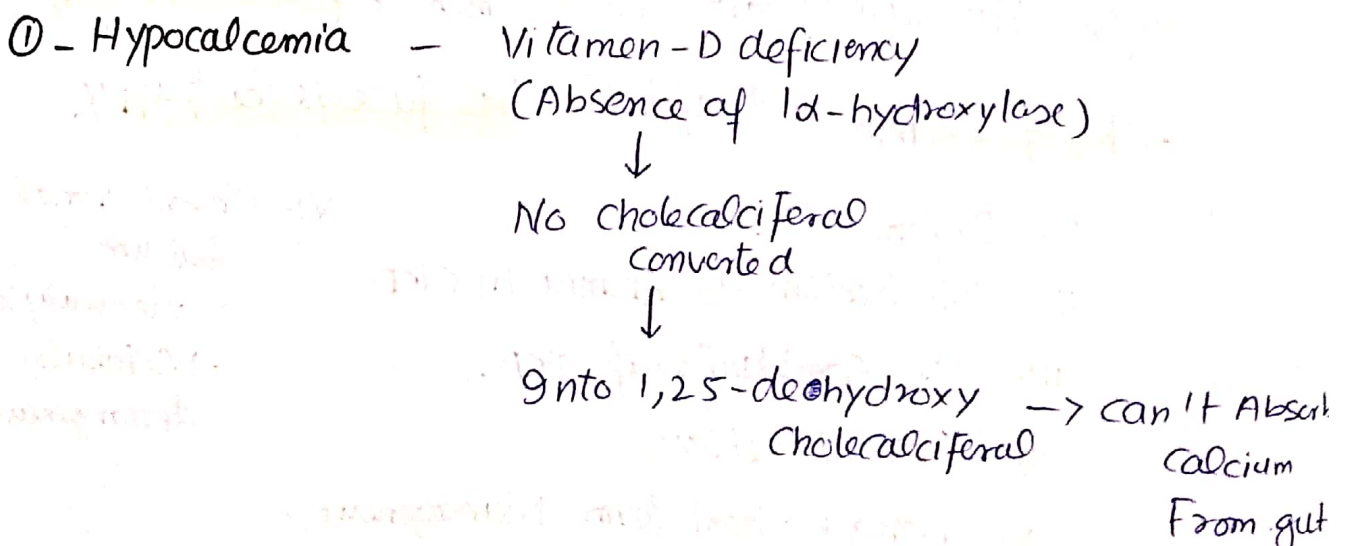 ① - Hypocalcemia - Vitamen-D deficiency
(Absence of 1α-hydroxylase)
↓
No cholecalciferal
converted
↓
Into 1,25-deohydroxy → can't Absorb
Cholecalciferal calcium
From gut